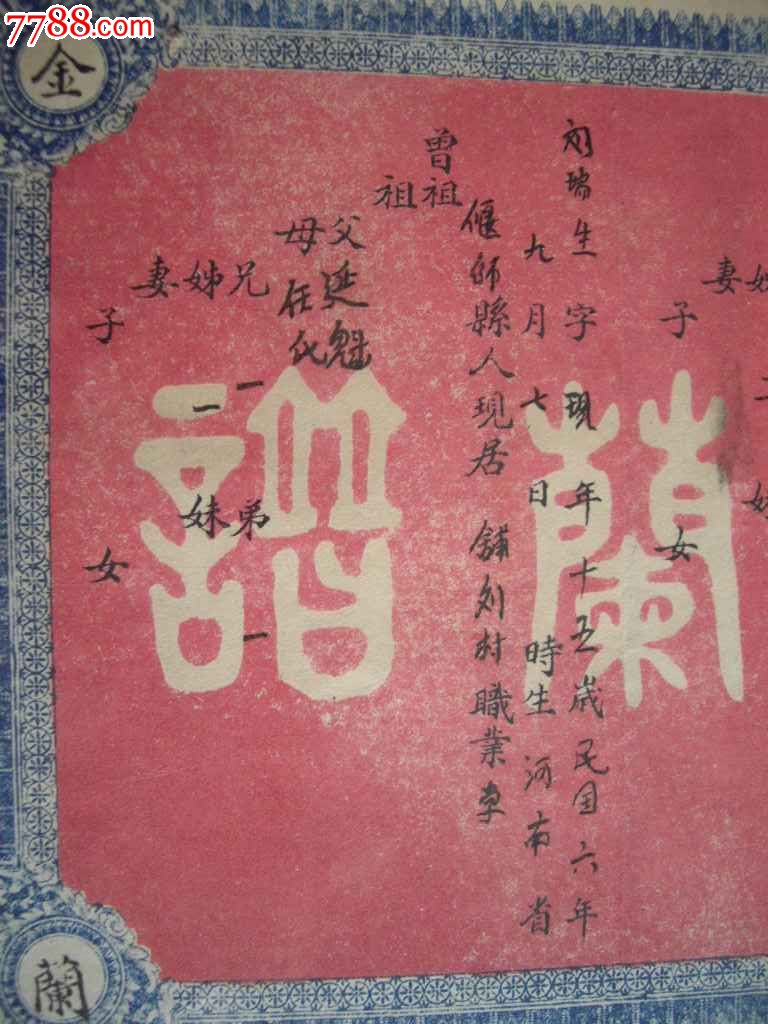 7788.com
金
蘭
蘭譜
妻
子
女
刘瑞生字 現年十五歲民国六年
九月七日 時生河南省
偃師縣人現居 舖刘村職業
曾祖
祖
父延魁
母任氏
兄一 弟一
姊一 妹
妻
子 女